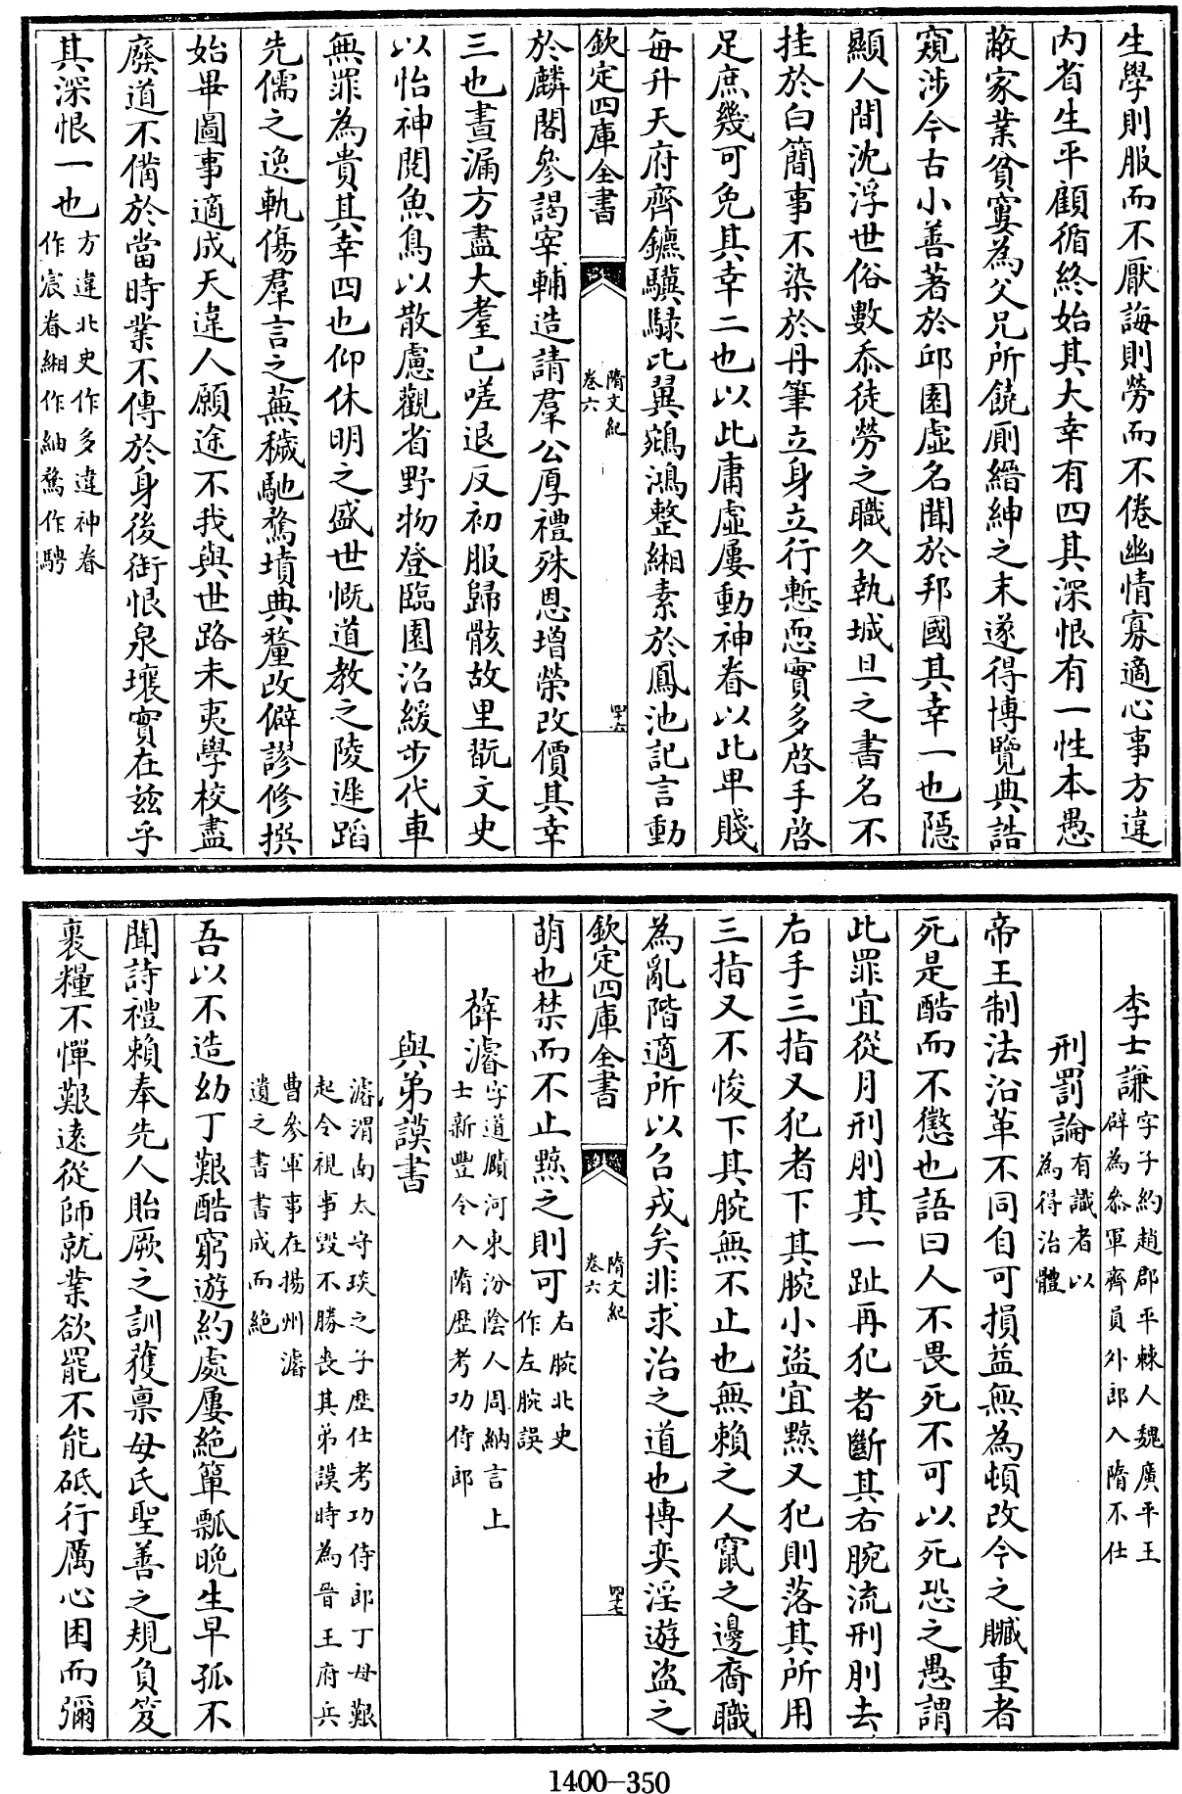 生學則服而不厭誨則勞而不倦幽情寡適心事方違
内省生平顧循終始其大幸有四其深恨有一性本愚
蔽家業貧窶為父兄所饒厠縉紳之末遂得博覽典誥
窺涉今古小善著於邱園虚名聞於邦國其幸一也隠
顯人間沈浮世俗數忝徒勞之職久執城旦之書名不
挂於白簡事不染於丹筆立身立行慙恧實多啓手啓
足庶幾可免其幸二也以此庸虚屢動神眷以此卑賤
每升天府齊鑣驥騄比翼鵷鴻整緗素於鳳池記言動
欽定四庫全書
隋文紀
卷六
四十六
於麟閣參謁宰輔造請羣公厚禮殊恩增榮改價其幸
三也晝漏方盡大耋已嗟退反初服歸骸故里翫文史
以怡神閱魚鳥以散慮觀省野物登臨園沼緩步代車
無罪為貴其幸四也仰休明之盛世慨道教之陵遲蹈
先儒之逸軌傷羣言之蕪穢馳騖墳典釐改僻謬修撰
始畢圖事適成天違人願途不我與世路未夷學校盡
廢道不備於當時業不傳於身後銜恨泉壤實在兹乎
其深恨一也方違北史作多違神眷
作宸眷緗作紬騖作騁
李士謙字子約趙郡平棘人魏廣平王
辟為參軍齊員外郎入隋不仕
刑罰論有識者以
為得治體
帝王制法沿革不同自可損益無為頓改今之贓重者
死是酷而不懲也語曰人不畏死不可以死恐之愚謂
此罪宜從肉刑刖其一趾再犯者斷其右腕流刑刖去
右手三指又犯者下其腕小盗宜黥又犯則落其所用
三指又不悛下其腕無不止也無賴之人竄之邊裔職
為亂階適所以召戎矣非求治之道也博奕淫遊盗之
欽定四庫全書
隋文紀
卷六
四十七
萌也禁而不止黥之則可右腕北史
作左腕誤
薛濬字道賾河東汾陰人周納言上
士新豐令入隋歴考功侍郎
與弟謨書
濬渭南太守琰之子歴仕考功侍郎丁母艱
起令視事毁不勝喪其弟謨時為晉王府兵
曹參軍事在揚州濬
遺之書書成而絶
吾以不造幼丁艱酷窮遊約處屢絶簞瓢晚生早孤不
聞詩禮賴奉先人貽厥之訓獲禀母氏聖善之規負笈
裹糧不憚艱遠從師就業欲罷不能砥行厲心困而彌
1400—350